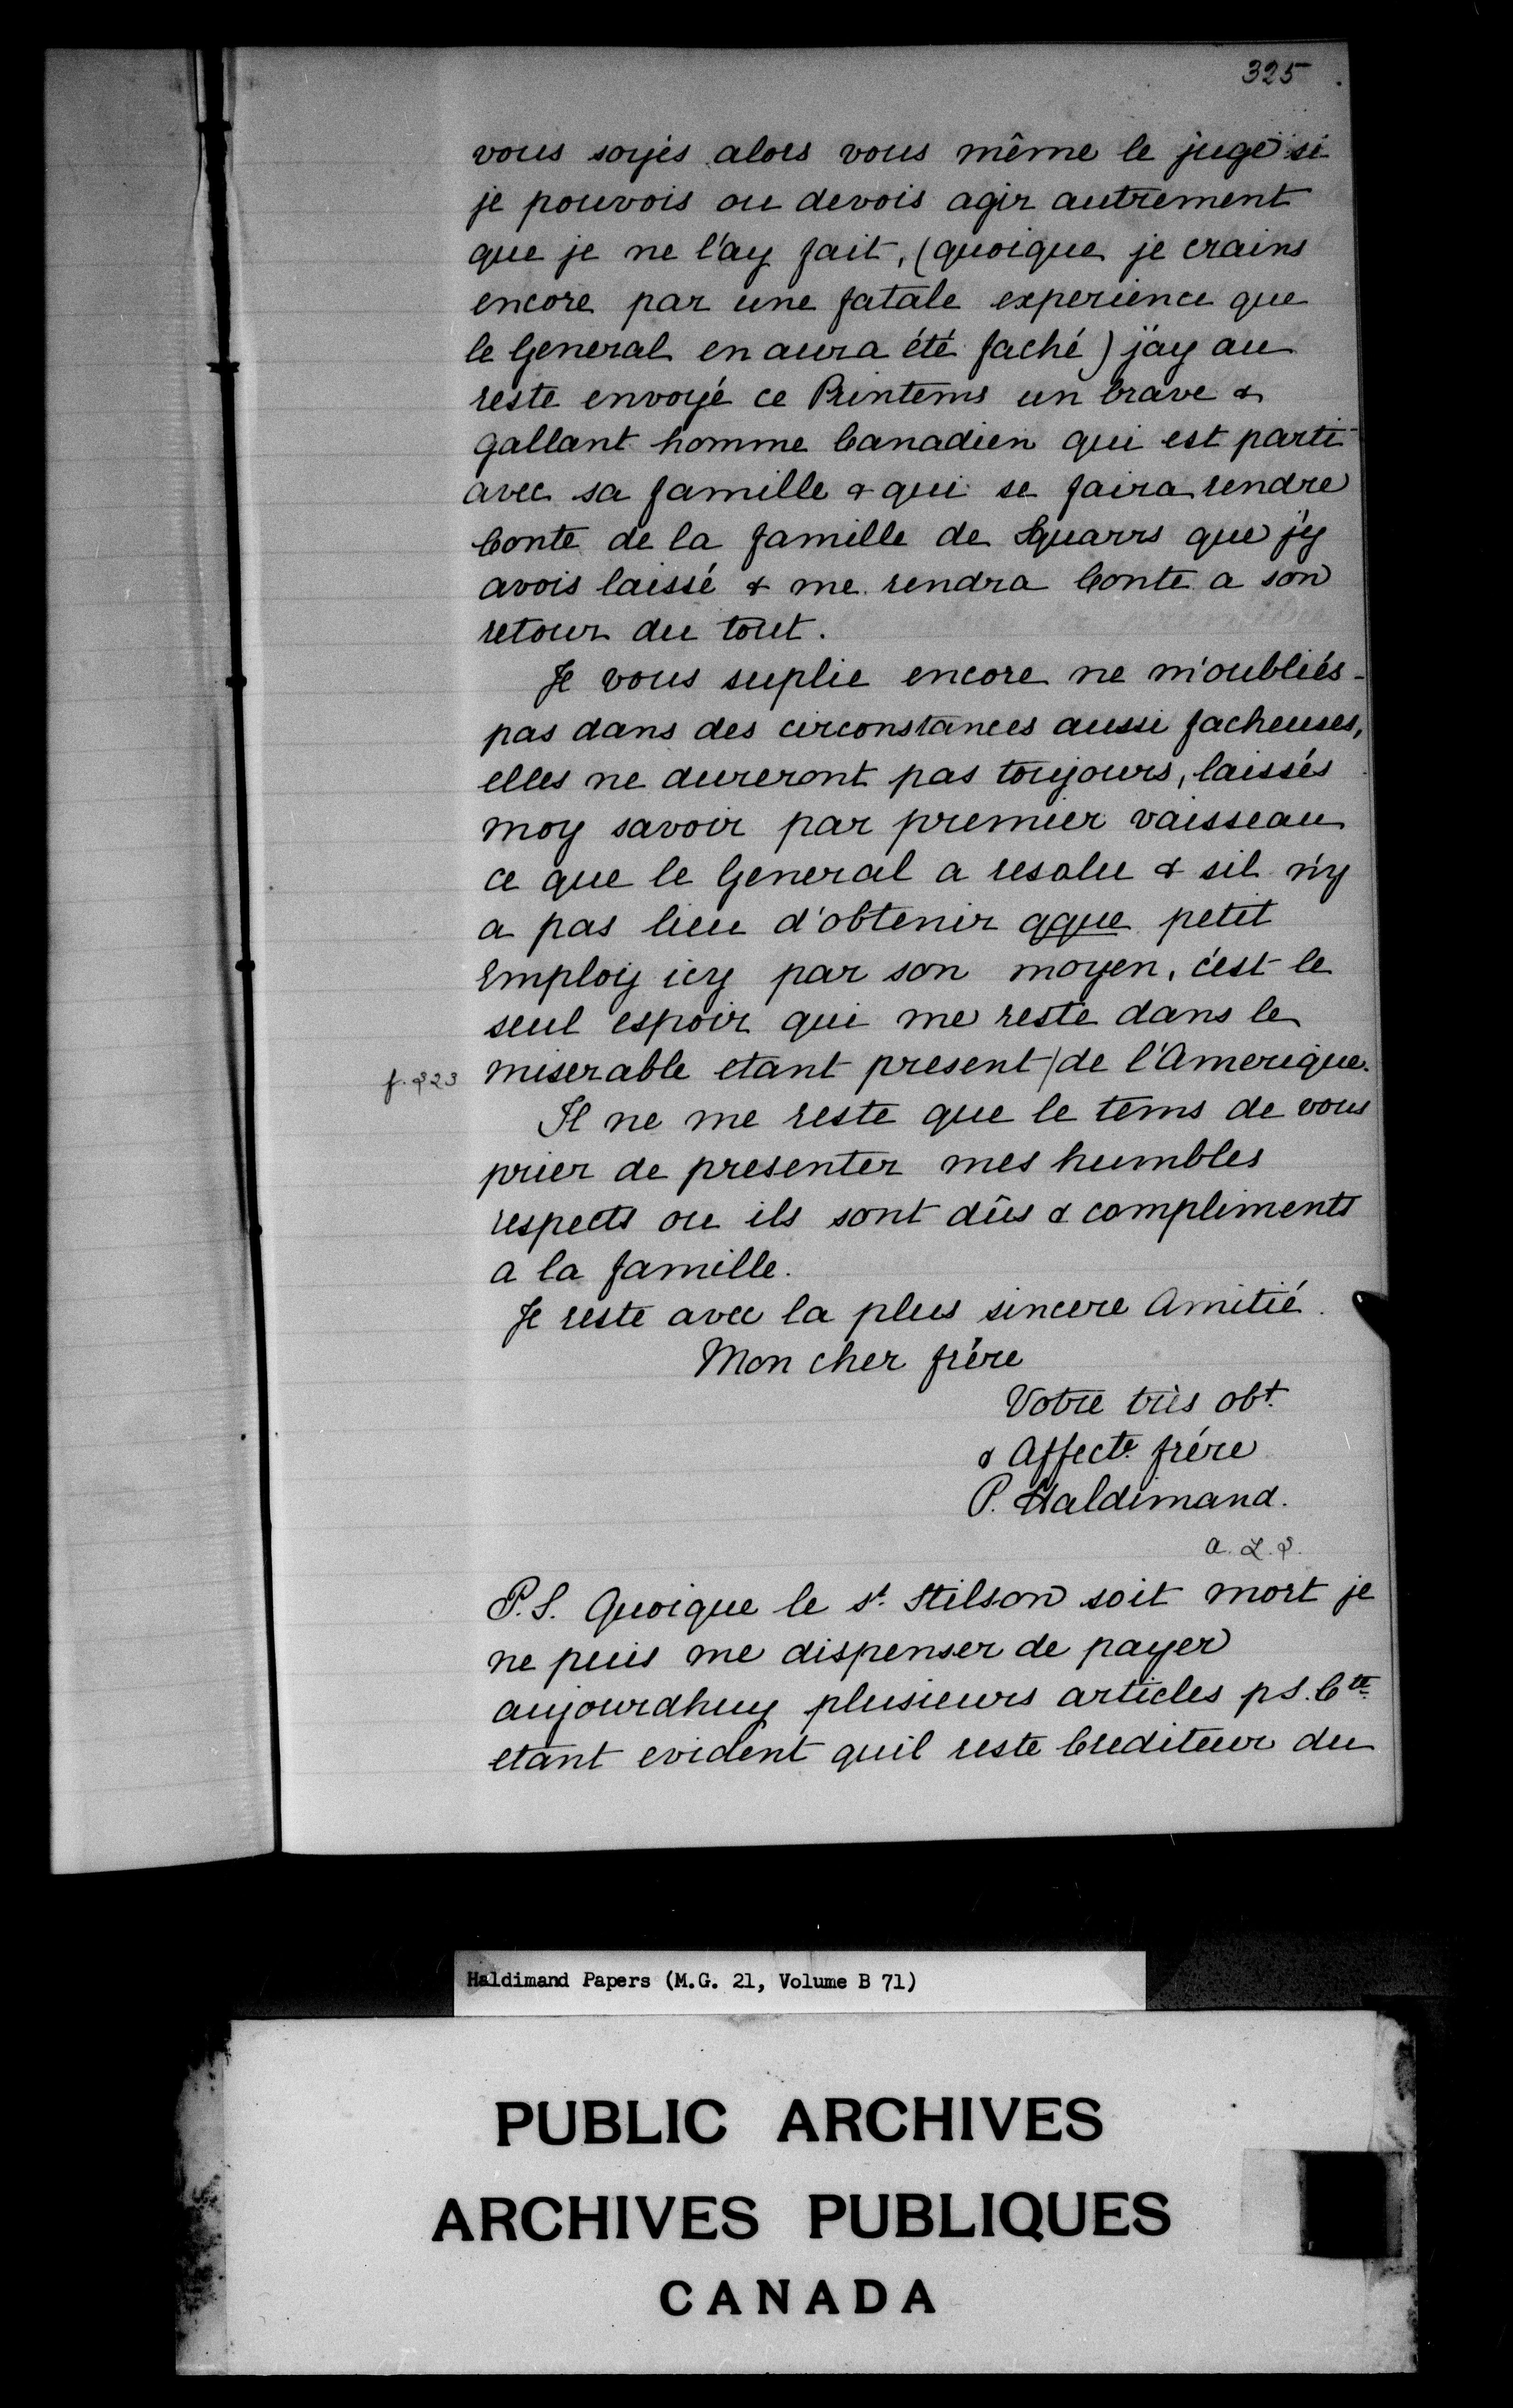 325
vous soyés alors vous même le juge si
je pouvois ou devois agir autrement
que je ne l'ay fait, (quoique je crains
encore par une fatale experience que
le General en aura été faché) j'ay au
reste envoyé ce Printems un brave &
gallant homme Canadien qui est parti
avec sa famille & qui se faira rendre
Conte de la famille de Squarrs que j'y
avois laissé & me rendra Conte a son
retour du tout.
Je vous suplie encore ne m'oubliés
pas dans des circonstances aussi facheuses,
elles ne dureront pas toujours, laissés
moy savoir par premier vaisseau
ce que le General a resolu & sil n'y
a pas lieu d'obtenir qque petit
Employ icy par son moyen, c'est le
seul espoir qui me reste dans le
f. 223 miserable etant present/de l'Amerique.
Il ne me reste que le tems de vous
prier de presenter mes humbles
respects ou ils sont dûs & compliments
a la famille.
Je reste avec la plus sincere Amitié.
Mon cher frére
Votre très obt.
& Affecte. frére
P. Haldimand.
a. L. S.
P.S. Quoique le sr. Stilson soit mort je
ne puis me dispenser de payer
aujourdhuy plusieurs articles p S. Cte.
etant evident quil reste Crediteur du
Haldimand Papers (M.G. 21, Volume B 71)
PUBLIC ARCHIVES
ARCHIVES PUBLIQUES
CANADA